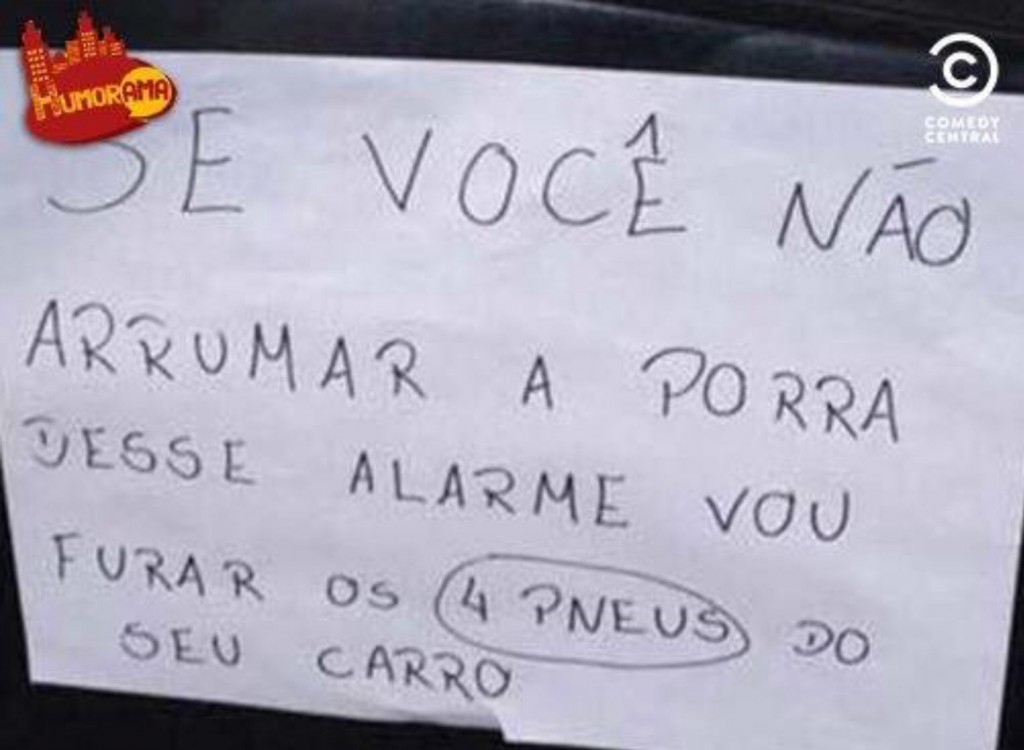 HUMORAMA
COMEDY
CENTRAL
SE VOCÊ NÃO
ARRUMAR A PORRA
DESSE ALARME VOU
FURAR OS 4 PNEUS DO
SEU CARRO